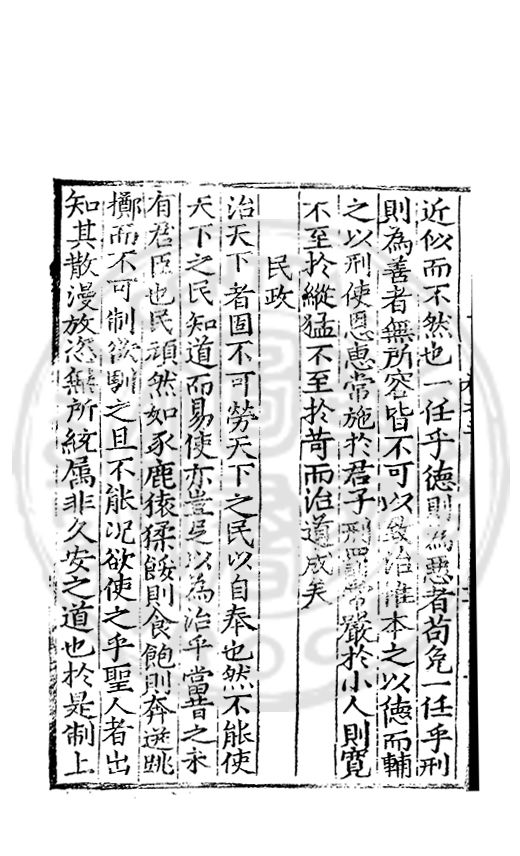 近似而不然也一任乎德則為惡者苟免一任乎刑
則為善者無所容皆不可以致治惟本之以德而輔
之以刑使恩惠常施於君子刑罰常嚴於小人則寬
不至於縱猛不至於苛而治道成矣
民政
治天下者固不可勞天下之民以自奉也然不能使
天下之民知道而易使亦豈足以為治乎當昔之未
有君臣也民頑然如豕鹿猿猱餒則食飽則奔逰跳
擲而不可制欲馴之且不能况欲使之乎聖人者出
知其散漫放恣無所統属非久安之道也於是制上